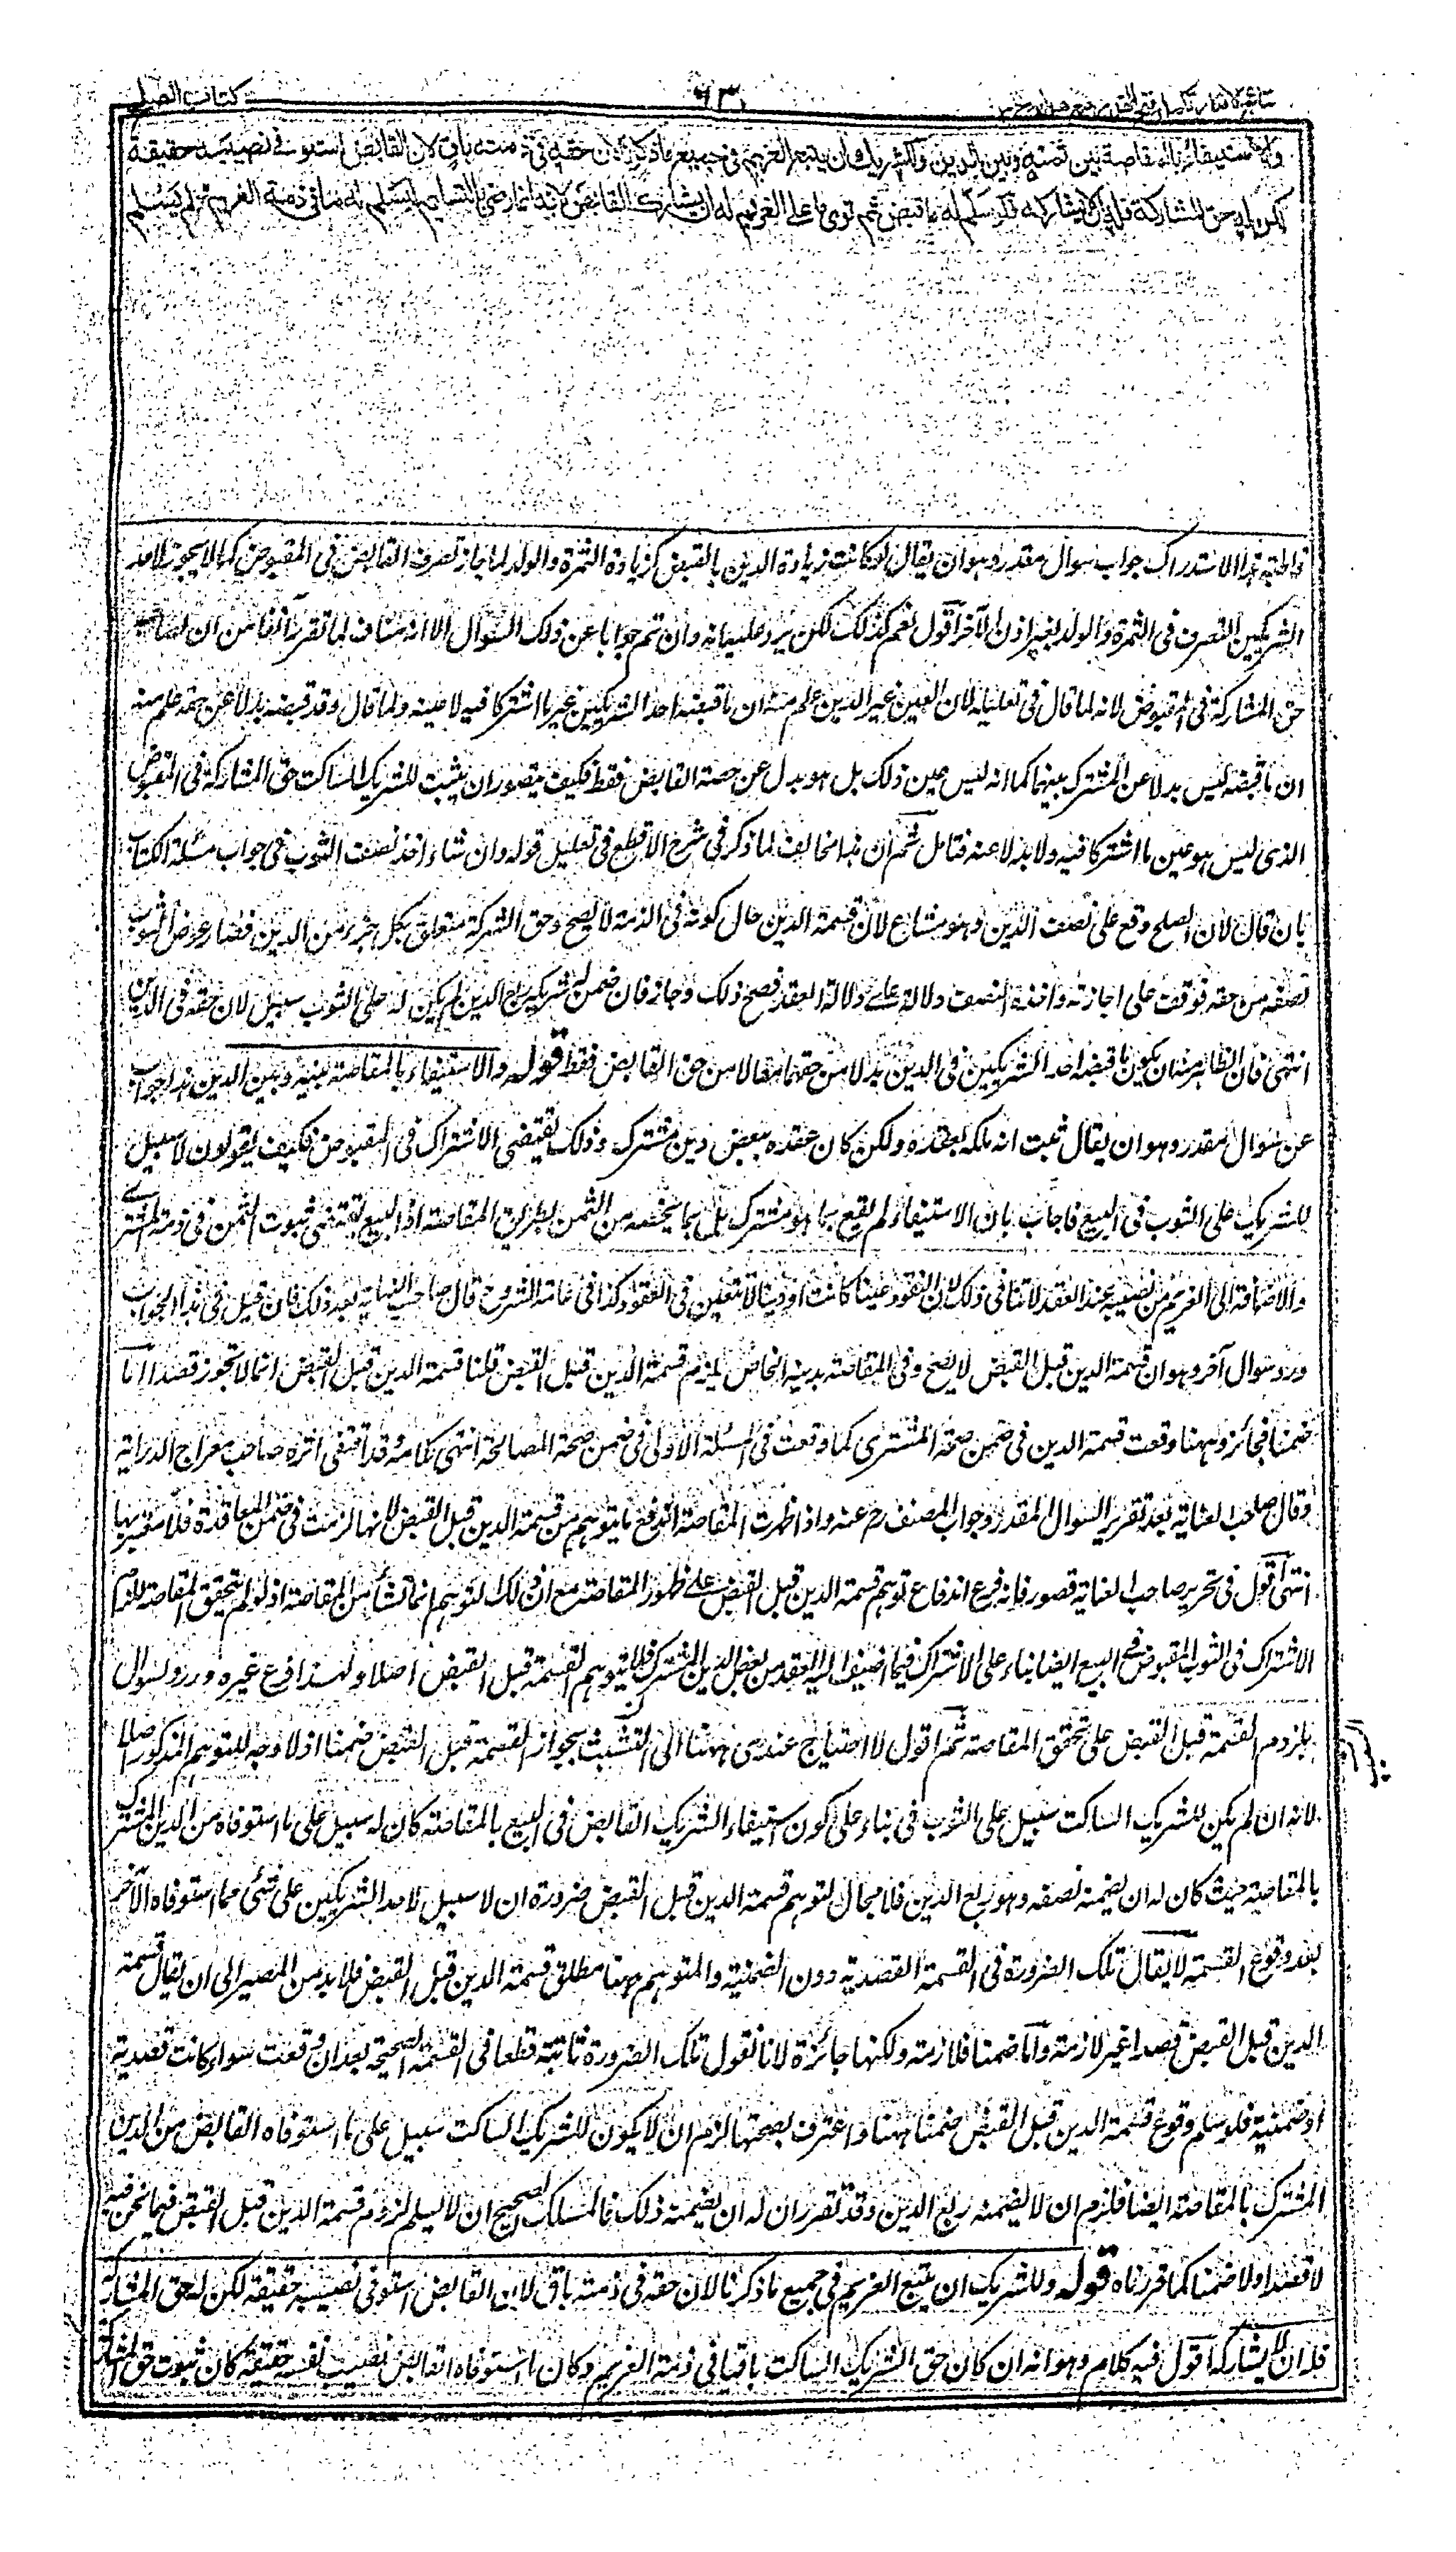 نتائج الافكار تكملة فتح القدير مع هدايه ج ٣
٦٣
كتاب الصلح
والاستيفاء بالمقاصة بين ثمنه وبين الدين وللشريك ان يتبع الغريم فى جميع ما ذكرنا لان حقه فى ذمته باق لان القابض استوفى نصيبه حقيقة
لكن له حق المشاركة فله ان لا يشاركه فلو سلم له ما قبض ثم توى ما على الغريم له ان يشارك القابض لانه انما رضى بالتسليم ليسلم له ما فى ذمة الغريم ولم يسلم
هذا الاستدراك جواب سوال مقدر وهو ان يقال لو كانت زيادة الدين بالقبض كزيادة الثمرة والولد لما جاز تصرف القابض فى المقبوض كما لا يجوز لاحد
الشريكين التصرف فى الثمرة والولد بغير اذن الآخر اقول نعم كذلك لكن يرد عليه انه وان تم جوابا عن ذلك السوال الا انه مناف لما تقرر آنفا من ان لصاحبه
حق المشاركة فى المقبوض لانه لما قال فى تعليله لان العين غير الدين علم منه ان ما قبضه احد الشريكين غير ما اشتركا فيه لا عينه ولما قال وقد قبضه بدلا عن حقه علم منه
ان ما قبضه ليس بدلا عن المشترك بينهما كما انه ليس عين ذلك بل هو بدل عن حصة القابض فقط فكيف يتصور ان يثبت للشريك الساكت حق المشاركة فى المقبوض
الذى ليس هو عين ما اشتركا فيه ولا بدلا عنه فتامل ثم ان هذا مخالف لما ذكر فى شرح الاقطع فى تعليل قوله وان شاء اخذ نصف الثوب فى جواب مسئلة الكتاب
بان قال لان الصلح وقع على نصف الدين وهو مشاع لان قسمة الدين حال كونه فى الذمة لا يصح وحق الشركة متعلق بكل جزء من الدين فصار عوض الثوب
نصفه من حقه فوقف على اجازته واخذه النصف دلالة على دلالة العقد فصح ذلك وجاز فان ضمن له شريكه ربع الدين لم يكن له على الثوب سبيل لان حقه فى الدين
انتهى فان الظاهر منه ان يكون ما قبضه احد الشريكين فى الدين بدلا من حقهما معا لا من حق القابض فقط قوله والاستيفاء بالمقاصة بينه وبين الدين هذا جواب
عن سوال مقدر وهو ان يقال ثبت انه ملكه بعقده ولكن كان عقده ببعض دين مشترك وذلك يقتضى الاشتراك فى المقبوض فكيف يقولون لا سبيل
للشريك على الثوب فى البيع فاجاب بان الاستيفاء لم يقع بما هو مشترك بل بما يخصه من الثمن بطريق المقاصة اذ البيع يقتضى ثبوت الثمن فى ذمة المشترى
والاضافة الى الغريم من نصيبه عند العقد لا تنافى ذلك لان النقود عينا كانت او دينا لا تتعين فى العقود كذا فى عامة الشروح قال صاحب النهاية بعد ذلك فان قيل فى هذا الجواب
ورد سوال آخر وهو ان قسمة الدين قبل القبض لا يصح وفى المقاصة بدينه الخاص يلزم قسمة الدين قبل القبض قلنا قسمة الدين قبل القبض انما لا تجوز قصدا اما
ضمنا فجائز وههنا وقعت قسمة الدين فى ضمن صحة المشترى كما وقعت فى المسئلة الاولى فى ضمن صحة المصالحة انتهى كلامه وقد اقتفى اثره صاحب معراج الدراية
وقال صاحب العناية بعد تقرير السوال المقدر وجواب المصنف رح عنه واذا ظهرت المقاصة اندفع ما يتوهم من قسمة الدين قبل القبض لانها لزمت فى ضمن المعاقدة فلا معتبر بها
انتهى اقول فى تحرير صاحب العناية قصور فانه فرع اندفاع توهم قسمة الدين قبل القبض على ظهور المقاصة مع ان ذلك التوهم انما نشأ من المقاصة اذ لو لم يتحقق المقاصة للزم
الاشتراك فى الثوب المقبوض فى البيع ايضا بناء على الاشتراك فيما اضيف اليه العقد من بعض الدين المشترك فلا يتوهم القسمة قبل القبض اصلا ولهذا فرع غيره ورود السوال
بلزوم القسمة قبل القبض على تحقق المقاصة ثم اقول لا احتياج عندى ههنا الى التشبث بجواز القسمة قبل القبض ضمنا اذ لا وجه للتوهم المذكور اصلا
لانه ان لم يكن للشريك الساكت سبيل على الثوب فى بناء على كون استيفاء الشريك القابض فى البيع بالمقاصة كان له سبيل على ما استوفاه من الدين المشترك
بالمقاصة حيث كان له ان يضمنه نصفه وهو ربع الدين فلا مجال لتوهم قسمة الدين قبل القبض ضرورة ان لا سبيل لاحد الشريكين على شئ مما استوفاه الآخر
بعد وقوع القسمة لا يقال تلك الضرورة فى القسمة القصدية دون الضمنية والمتوهم ههنا مطلق قسمة الدين قبل القبض فلا بد من المصير الى ان يقال قسمة
الدين قبل القبض قصدا غير لازمة واما ضمنا فلازمة ولكنها جائزة لانا نقول تلك الضرورة ثابتة قطعا فى القسمة الصحيحة بعد ان وقعت سواء كانت قصدية
او ضمنية فلو سلم وقوع قسمة الدين قبل القبض ضمنا ههنا واعترف بصحتها لزم ان لا يكون للشريك الساكت سبيل على ما استوفاه القابض من الدين
المشترك بالمقاصة ايضا فلزم ان لا يضمنه ربع الدين وقد تقرر ان له ان يضمنه ذلك فالمسلك الصحيح ان لا يسلم لزوم قسمة الدين قبل القبض فيما نحن فيه
لا قصدا ولا ضمنا كما قررناه قوله وللشريك ان يتبع الغريم فى جميع ما ذكرنا لان حقه فى ذمته باق لان القابض استوفى نصيبه حقيقة لكن له حق المشاركة
فله ان لا يشاركه اقول فيه كلام وهو انه ان كان حق الشريك الساكت باقيا فى ذمة الغريم وكان ما استوفاه القابض نصيب نفسه حقيقة كان ثبوت حق المشاركة